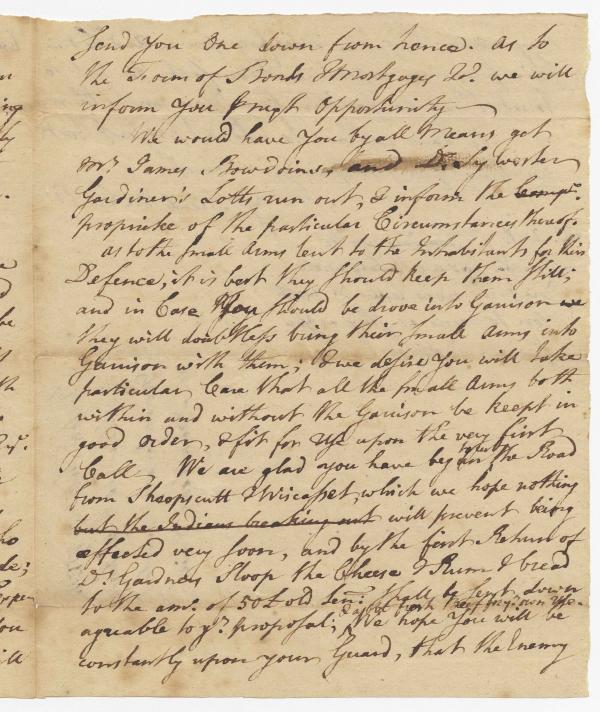 Send You One down from hence. As to
the Form of Bonds & Mortgages &c. we will
inform You next Opportunity
We would have You by all Means get
Mr. James Bowdoins, and Dr. Sylvester
Gardiner's Lotts run out, & inform the Comp.
propriete of the particular Circumstances thereof.
as to the Small Arms lent to the Inhabitants for their
Defence, it is best they should keep them still;
and in Case You should be drove into Garrison we
they will doubtless bring their small Arms into
Garrison with them; & we desire You will take
particular Care that all the small Arms both
within and without the Garrison be keept in
good order, & fit for Use upon the very first
Call. We are glad you have begun to cut the Road
from Sheepscutt & Wiscasset, which we hope nothing
but the Indians breaking out will prevent being
effected very soon, and by the first Return of
Dr. Gardners Sloop the Cheese & Rum & bread
to the amt. of 50£ old tenr. shall be sent down
agreable to yr. proposal; We hope You will be
constantly upon your Guard, that the Enemy